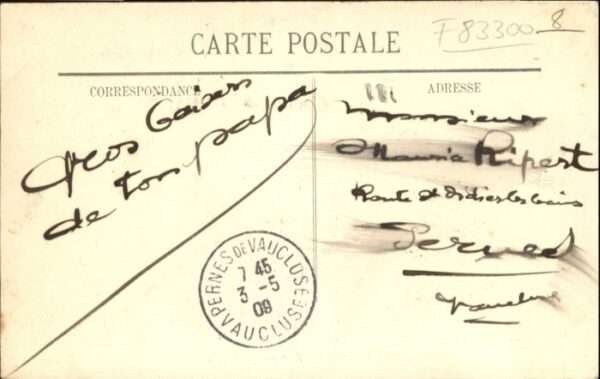 F83300 8
CARTE POSTALE
CORRESPONDANCE
ADRESSE
Gros baisers
de ton papa
Monsieur
Maurice Ripert
Route St Didier les bains
Pernes
Vaucluse
PERNES DE VAUCLUSE
7 45
3 -5
09
VAUCLUSE